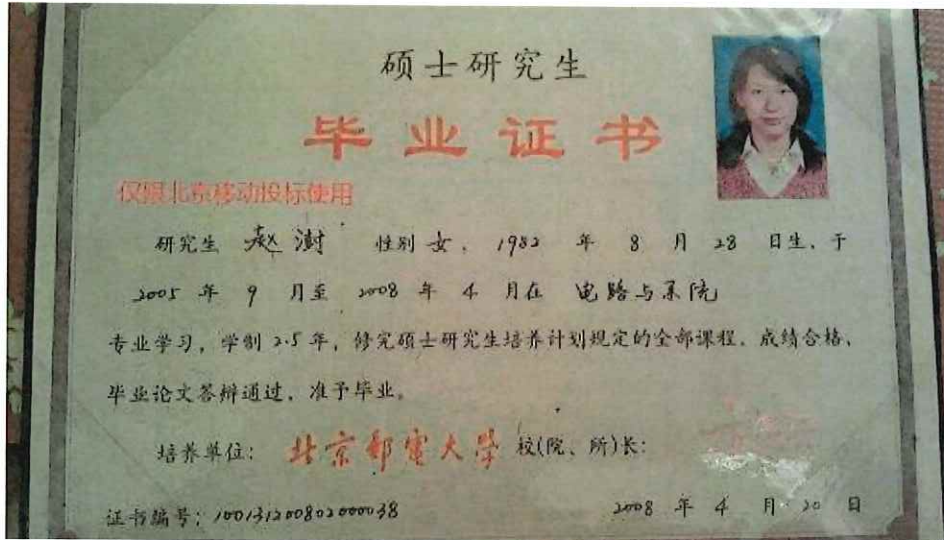 硕士研究生
毕业证书
仅限北京移动投标使用
研究生 赵澍 性别 女, 1982 年 8 月 28 日生, 于
2005 年 9 月至 2008 年 4 月在 电路与系统
专业学习, 学制 2.5 年, 修完硕士研究生培养计划规定的全部课程, 成绩合格,
毕业论文答辩通过, 准予毕业。
培养单位: 北京邮电大学 校(院、所)长:
证书编号: 100131200802000038 2008 年 4 月 20 日